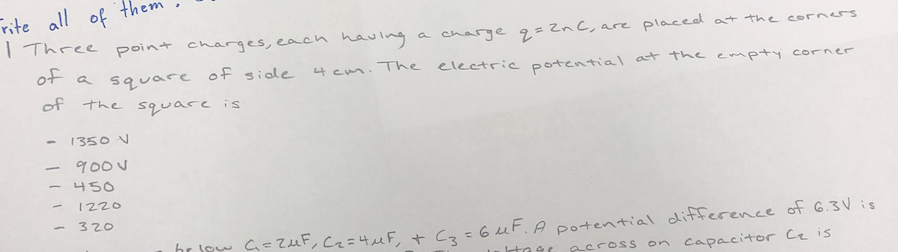 rite all of them.
1 Three point charges, each having a charge q = 2nC, are placed at the corners
of a square of side 4 cm. The electric potential at the empty corner
of the square is
- 1350 V
- 900 V
- 450
- 1220
- 320
below C₁ = 2μF, C₂ = 4μF, + C₃ = 6 μF. A potential difference of 6.3V is
across on capacitor C₂ is